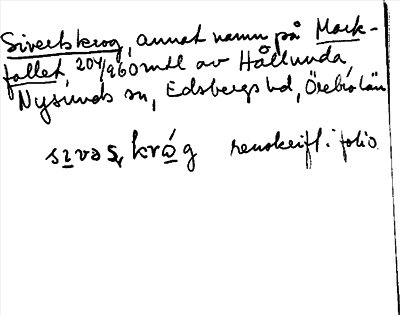 Sivertskrog, annat namn på Mark-
fallet, 204/960 mtl av Hållunda
Nysunds sn, Edsbergs hd, Örebro län
sɪvəs, kråg renskrift i folio